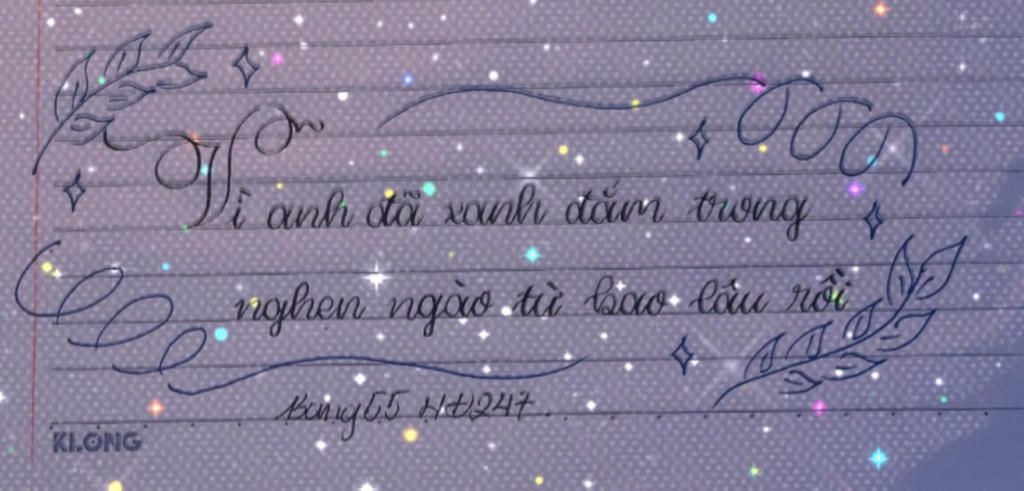 Vì anh đã xanh đắm trong
nghẹn ngào từ bao lâu rồi
HĐ247
KLONG